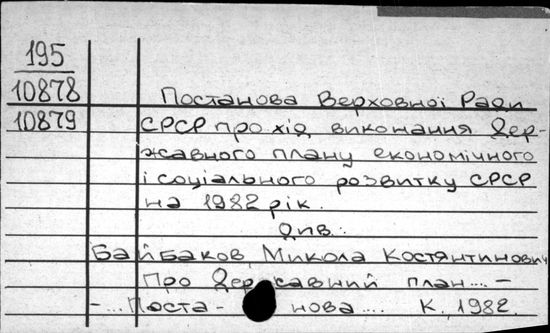 195
10878
10879
Постанова Верховної Ради
СРСР про хід виконання Дер-
жавного плану економічного
і соціального розвитку СРСР
на 1982 рік.
Див.:
Байбаков, Микола Костянтинович
Про Державний план.... –
–...Поста- нова.... К., 1982.